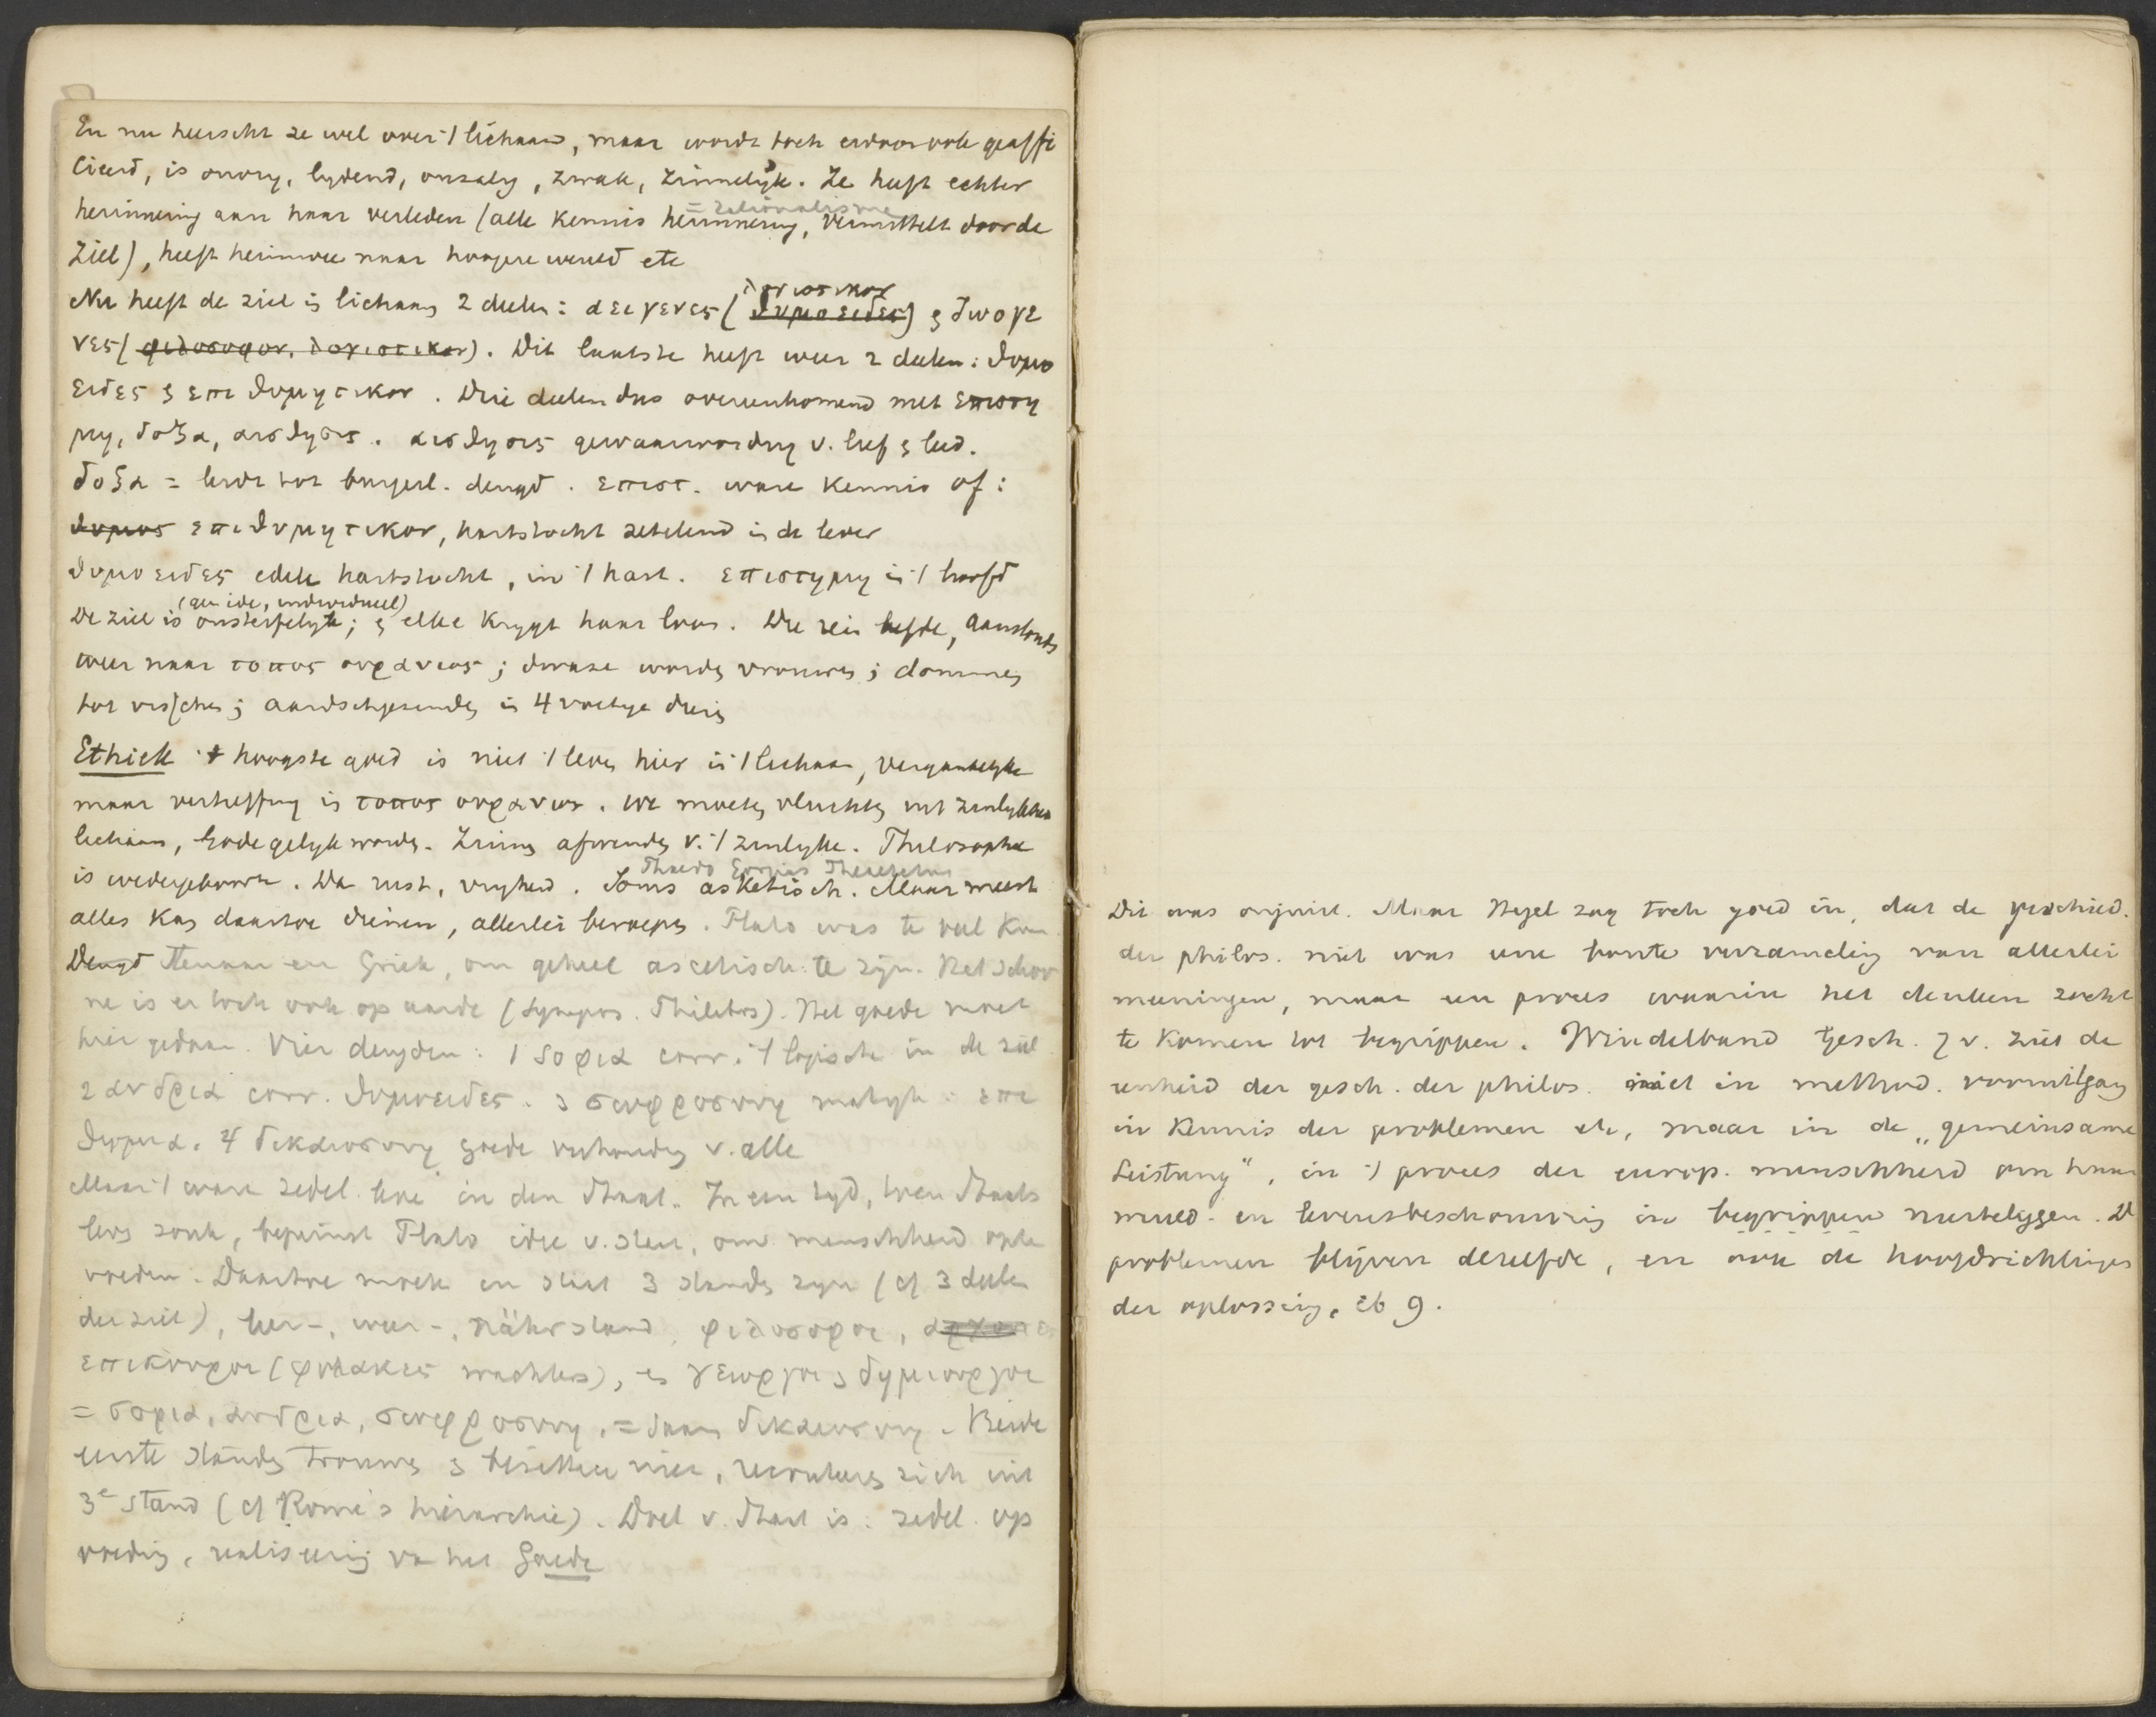 En nu heerscht ze wel over 't lichaam, maar wordt toch erdoor ook geaffi
cieerd, is onvry, lydend, onzalig, zwak, zinnelyk. Ze heeft echter
= rationalisme
herinnering aan haar verleden (alle kennis herinnering, vermittelt door de
Ziel), heeft heimwee naar hoogere wereld etc
λογιστικον
Nu heeft de ziel in lichaam 2 deelen: αειγενες (θυμοειδες) & ζωογε
νες (φιλοσοφον, λογιστικον). Dit laatste heeft weer 2 deelen: θυμο
ειδες & επιθυμητικον. Drie deelen dus overeenkomend met επιστη
μη, δοξα, αισθησις. αισθησις gewaarwording v. lief & leed.
δοξα = leidt tot burgerl. deugd. επιστ. ware kennis of:
θυμος επιθυμητικον, hartstocht zetelend in de lever
θυμοειδες edele hartstocht, in 't hart. επιστημη in 't hoofd
(geen idee, individueel)
De ziel is onsterfelyk; & elke krygt haar loon. Die rein leefde, aanstonds
weer naar τοπος ουρανιος; dwaze worden vrouwen; dommen
tot visschen; aardschgezinden in 4 voetige dieren
Ethiek 't hoogste goed is niet 't leven hier in 't lichaam, vergankelyke
maar verheffing in τοπος ουρανιος. We moeten vluchten uit zinlyke
lichaam, Gode gelyk worden. Zinnen afwenden v. 't zinlyke. Philosophie
Phaedo Gorgias Theaetetus
is wedergeboorte. Da rust, vryheid. Soms asketisch. Maar meest
alles kan daartoe dienen, allerlei beroepen. Plato was te veel Kun
Deugd stenaar en Griek, om geheel ascetisch te zijn. Het schoo
ne is er toch ook op aarde (Sympos. Philebos). Het goede moet
hier gedaan. Vier deugden: 1 σοφια corr. 't logische in de ziel
2 ανδρεια corr. θυμοειδες. 3 σωφροσυνη matigh: επι
θυμια. 4 δικαιοσυνη goede verhouding v. alle
Maar 't ware zedel. leve in den Staat. In een tyd, toen Staats
leven zonk, bepeinst Plato idee v. Staat, om menschheid opte
voeden. Daartoe moeten en Staat 3 standen zyn (cf 3 deelen
der ziel), leer-, weer-, nährstand, φιλοσοφοι, αρχοντες
επικουροι (φυλακες wachters), en γεωργοι & δημιουργοι
= σοφια, ανδρεια, σωφροσυνη, = daarin δικαιοσυνη. Beide
eerste standen trouwen & bezitten niet, recruteeren zich uit
3e stand (cf Rome's hierarchie). Doel v. Staat is: zedel. op
voeding, realiseering van het Goede
Dit was onjuist. Maar Hegel zag toch goed in, dat de geschied.
der philos. niet was eene bonte verzameling van allerlei
meeningen, maar een proces waarin het denken zocht
te komen tot begrippen. Windelband Gesch. 7 v. ziet de
eenheid der gesch. der philos. niet in method. vooruitgang
in kennis der problemen etc, maar in de „gemeinsame
Leistung", in 't proces der europ. menschheid om haar
wereld- en levensbeschouwing in begrippen neerteleggen. D
problemen blijven dezelfde, en ook de hoofdrichtingen
der oplossing, ib 9.